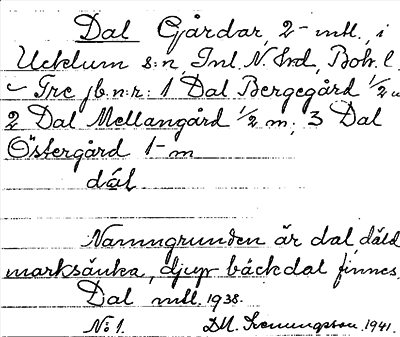 Dal Gårdar, 2-mtl., i
Ucklum s:n Inl. N. Hrd, Boh. l.
Tre jb. n:r: 1 Dal Bergegård 1/2
2 Dal Mellangård 1/2 m; 3 Dal
Östergård 1-m
dál
Namngrunden är dal, däld
marksänka, djup bäckdal finnes.
Dal mtl. 1938.
No 1. 1941.